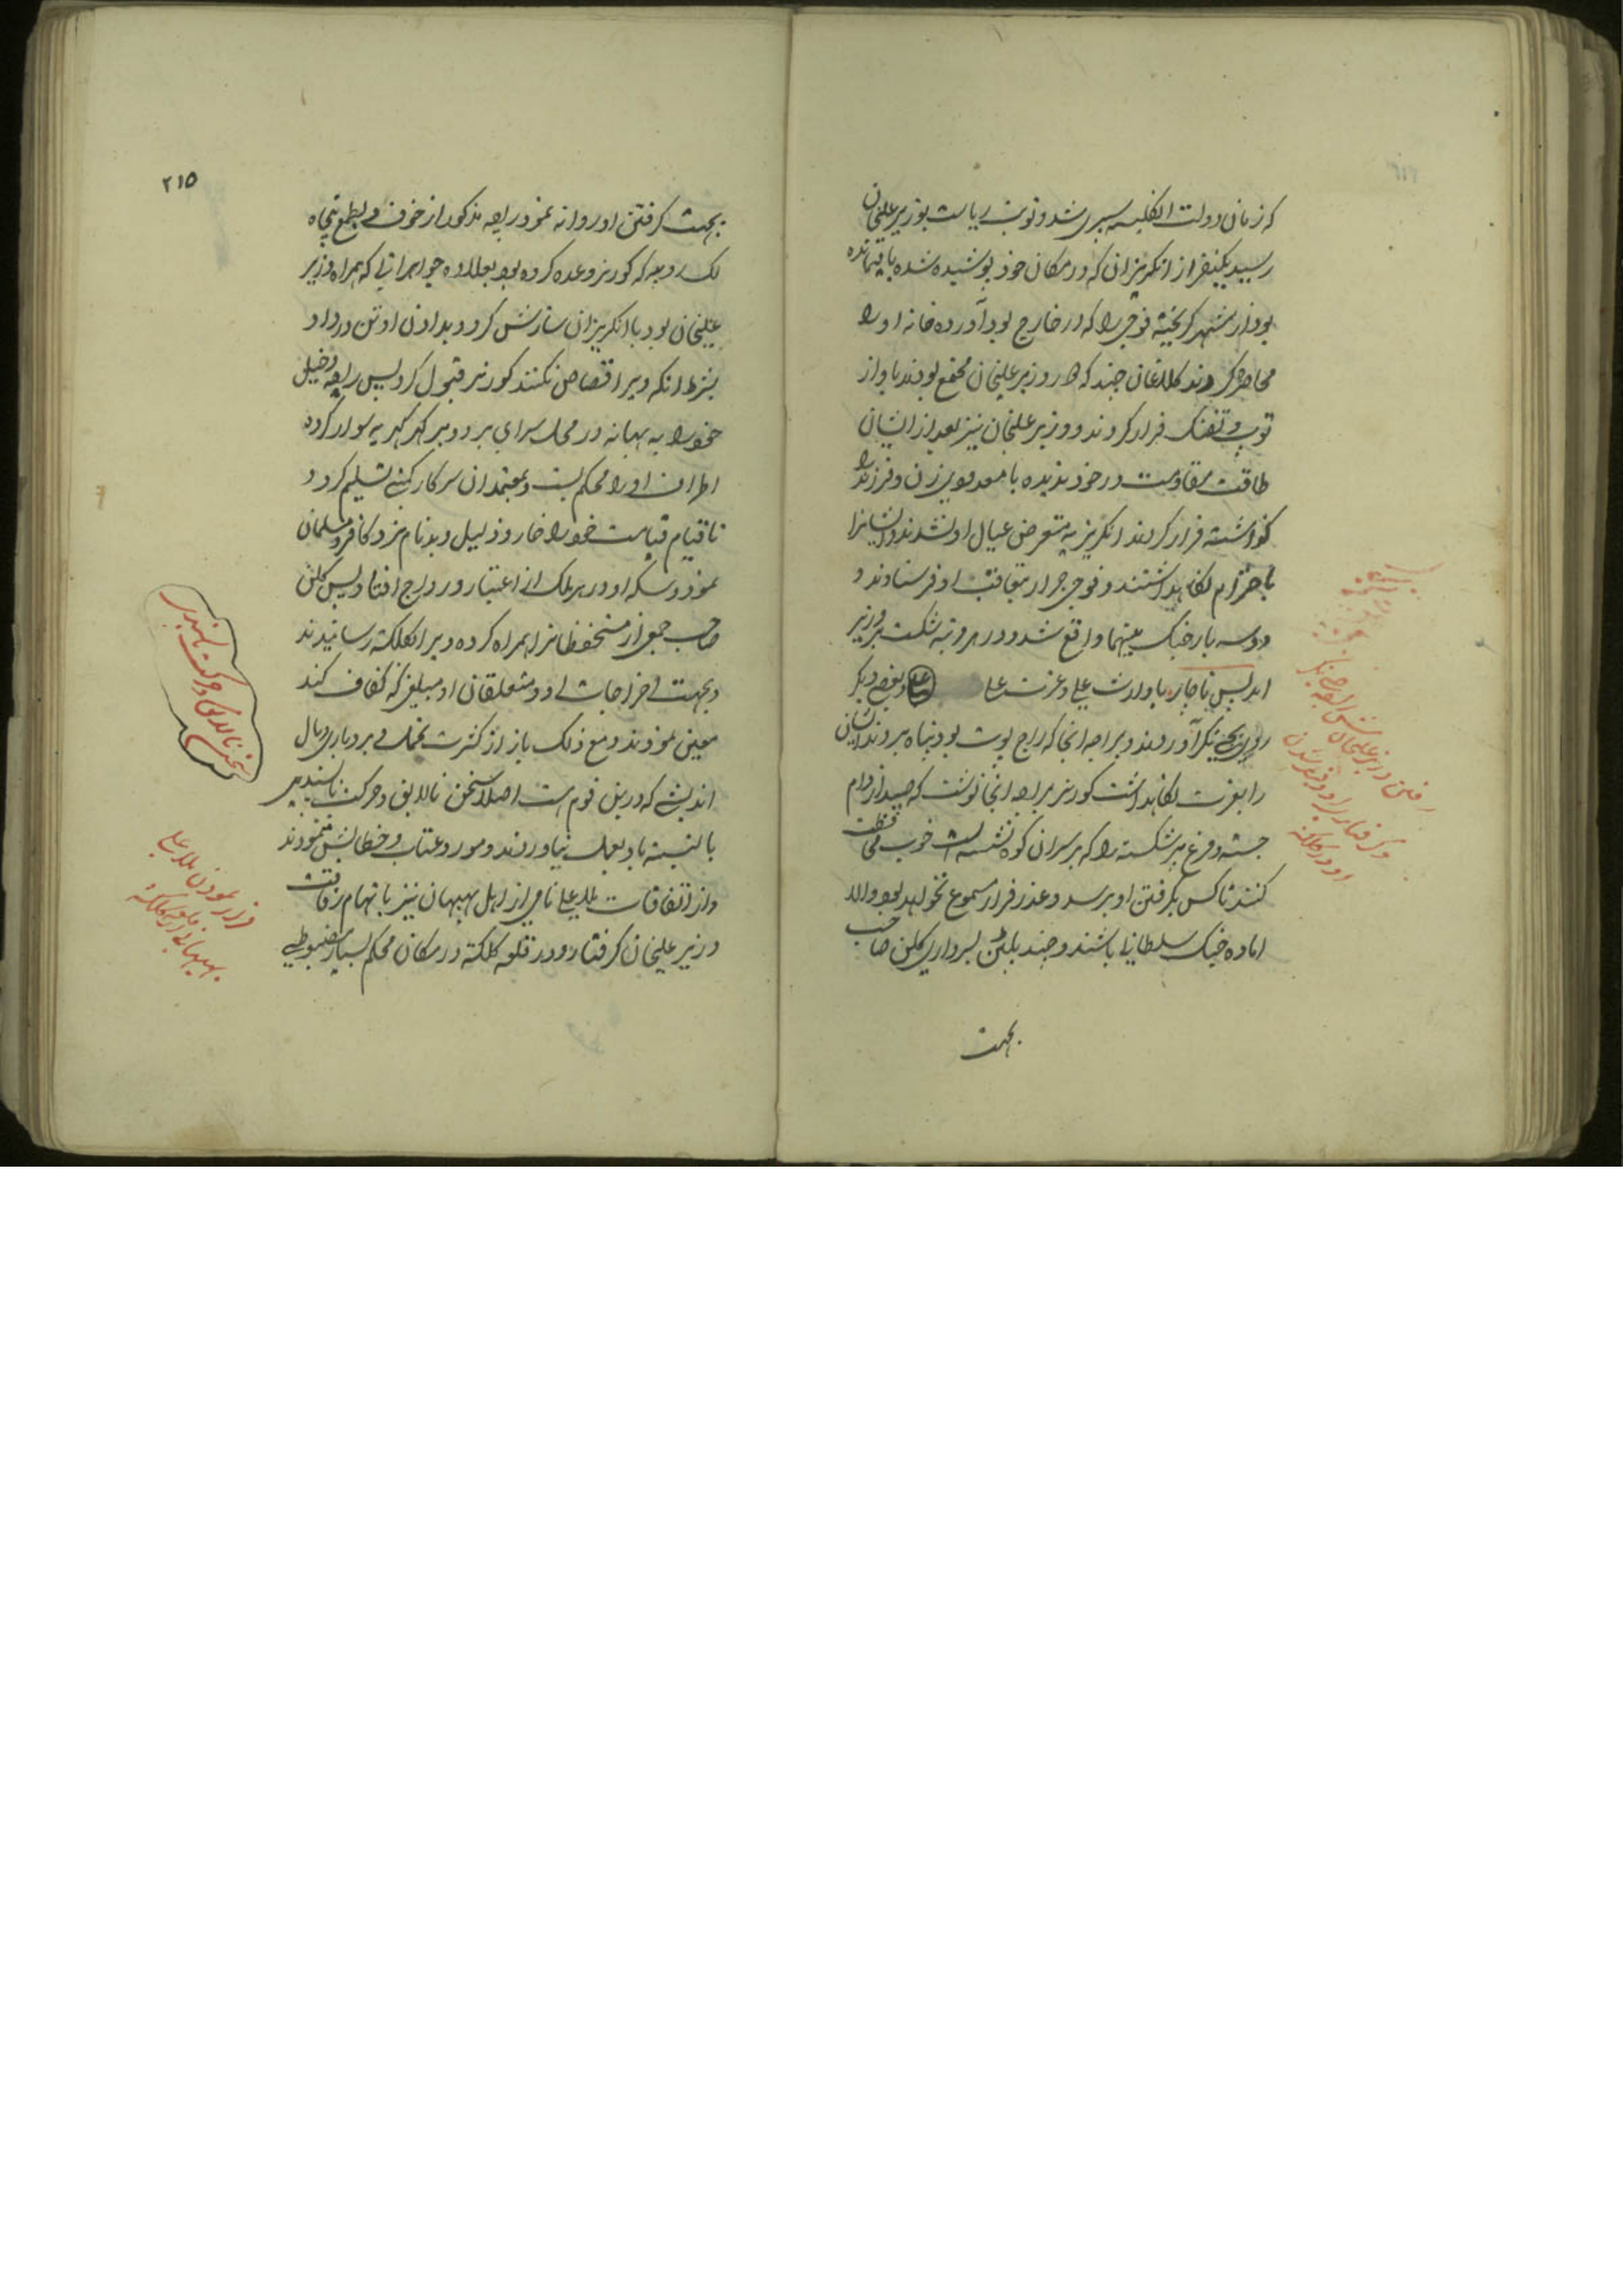 که زمان دولت انگلیسیه سپری شد و نوبت ریاست بوزیر علیخان
رسید یکنفر از انکریزان که در مکان خود پوشیده شده باقیمانده
بود از شهر کریخته فوجی را که در خارج بود آورده خانه او را
محاصره کردند کلاغان چند که در وزیر علیخان مجتمع بودند باواز
توپ و تفنک فرار کردند و وزیر علیخان نیز بعد از ایشان
طاقت مقاومت در خود ندیده با معدودی زن و فرزند را
کذاشته فرار کردند انکریزیه متعرض عیال او نشدند و ایشانرا
باحترام نکاهداشتند و فوجی جرار بتعاقب او فرستادند و
دو سه بار جنک بینهما واقع شد و در هر مرتبه شکست بر وزیر
پس ناچار با وارث علی و عزت علی و بعضی دیکر
روی به آوردند و براجه انجا که راج پوت بود پناه بردند ایشان
را بعزت نکاهداشت کورنر براجه انجا نوشت که صید از دام
جسته و مرغ پر شکسته را که بر سران کوه نشسته است خوب محافظت
کنند تا کس بکرفتن او برسد و عذر فرار مسموع نخواهد بود والا
اماده جنک سلطانی باشند و چند پلتن بسرداری کلن صاحب
بجهت
۲۱۵
بجهت کرفتن او روانه نمود راجه مذکور از خوف و بطمع پنجاه
لک روپیه که کورنر وعده کرده بود بعلاوه جواهراتی که همراه وزیر
علیخان بود با انکریزان سازش کرد و بدادن او تن در داد
بشرط انکه ویرا قصاص نکنند کورنر قبول کرد پس راجه دخیل
خود را به بهانه در محل سرای برد و بر سوار کرده
اطراف او را محکم بست و بمعتمدان سرکار کمپنی تسلیم کرد و
تا قیام قیامت خود را خار و ذلیل و بدنام نزد کافر و مسلمان
نمود و سکه او در هر ملک از اعتبار و رواج افتاد پس کلن
صاحب جمعی از مستحفظانرا همراه کرده ویرا بکلکته رسانیدند
و بجهت اخراجات او و متعلقان او مبلغی که کفاف کند
معین نمودند و مع ذلک باز از کثرت تحمل و بردباری و مال
اندیشی که درین قوم است اصلا سخن نالایق و حرکت ناپسندیده
بالنسبه باو بعمل نیاوردند و مورد عتاب و خطابش ننمودند
و از اتفاقات ملا علی نامی از اهل بهبهان نیز باتهام رفاقت
وزیر علیخان کرفتار و در قلعه کلکته در مکان محکم بسیار مضبوطی
رفتن وزیر علیخان پیش راجه
و کرفتاری او و قید شدن
او در کلکته
سخن نالایق و حرکت ناپسندیده
فرار نمودن ملا علی
بهبهانی از قلعه کلکته